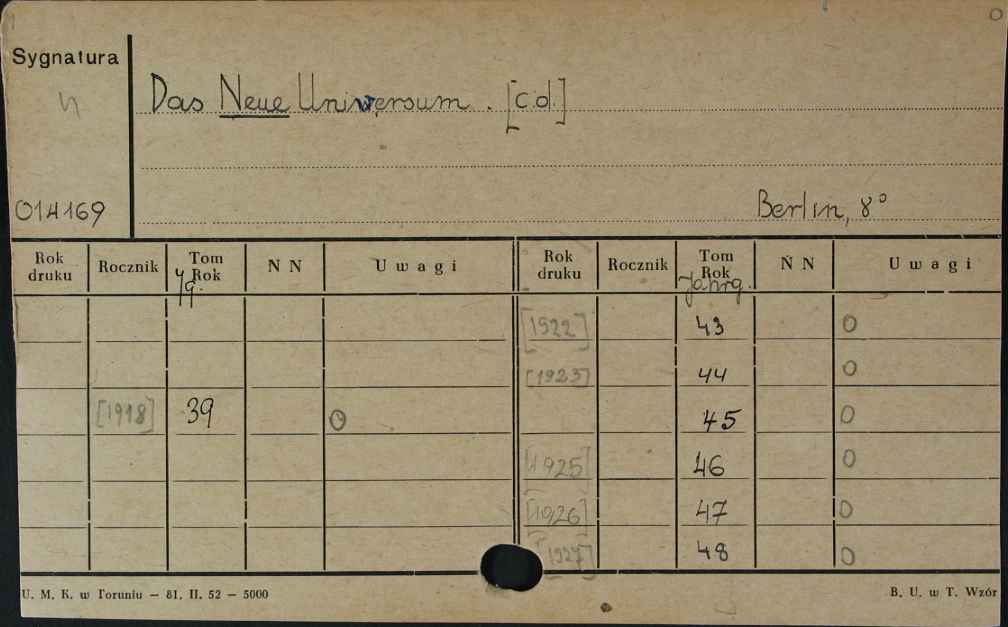 Sygnatura
Das Neue Universum. [c.d.]
014169
Berlin, 8°
Rok druku Rocznik Tom Rok N N Uwagi Rok druku Rocznik Tom Rok N N Uwagi
Jg. Jahrg.
[1922] 43 0
[1923] 44 0
[1918] 39 0 45 0
[1925] 46 0
[1926] 47 0
[1927] 48 0
U. M. K. w Toruniu — 81. II. 52 — 5000 B. U. w T. Wzór